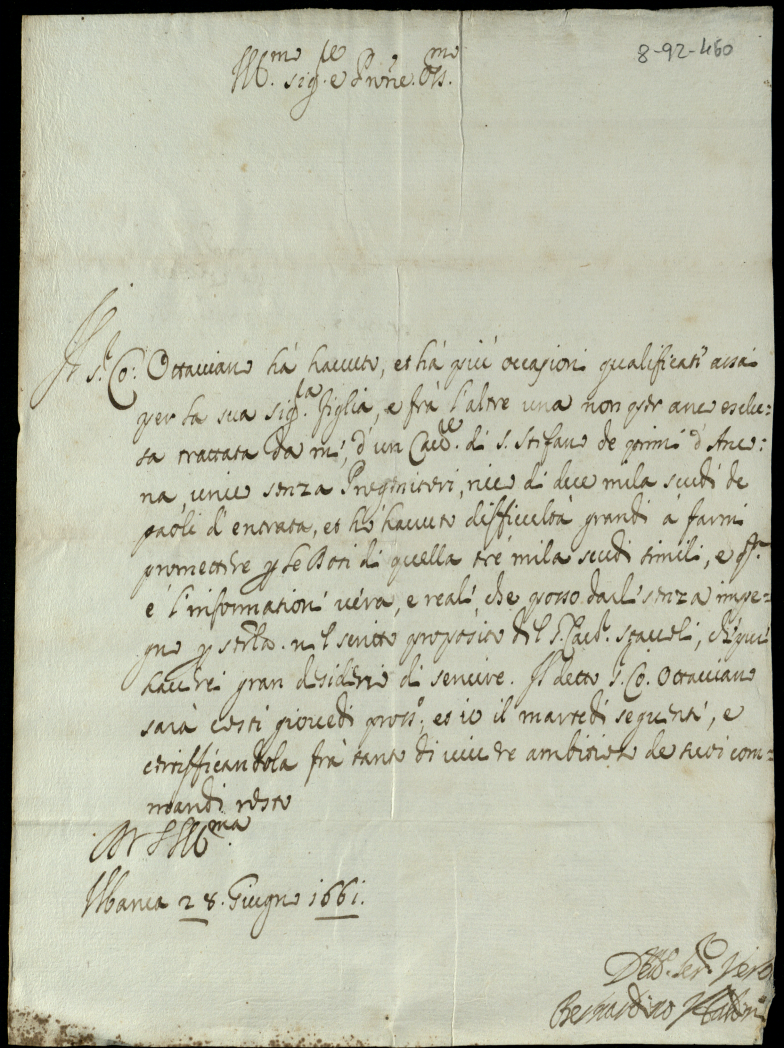 8-92-460
Ill.mo sig.re e P'rone Oss.mo
Il S.r Co: Ottaviano hà havuto, et hà più occasioni qualificati assai
per la sua sig.la figlia, e frà l'altre una non per anco esclu=
sa trattata da mé, d'un Cav.re di S. Stefano de primi d'Anco:
na, unico senza Progenitori, rico di due mila scudi de
paoli d'entrata, et hò havuto difficoltà grandi à farmi
promettere p le Doti di quella tré mila scudi simili, e q.ta
é l'informationi vera, e reali, che posso darli senza impe=
gno p nel scritto proposito del S. Cav.r, ch'
haverei gran desiderio di servire. Il detto S. Co. Ottaviano
sarà costì giovedì pross.o, et io il martedì seguenti, e
certifficandola frà tanto di vivere ambitioso de suoi com=
mandi resto
Di V.S. Ill.ma
28. Giugno 1661.
Dev.mo Ser.re Vero
Bernardino